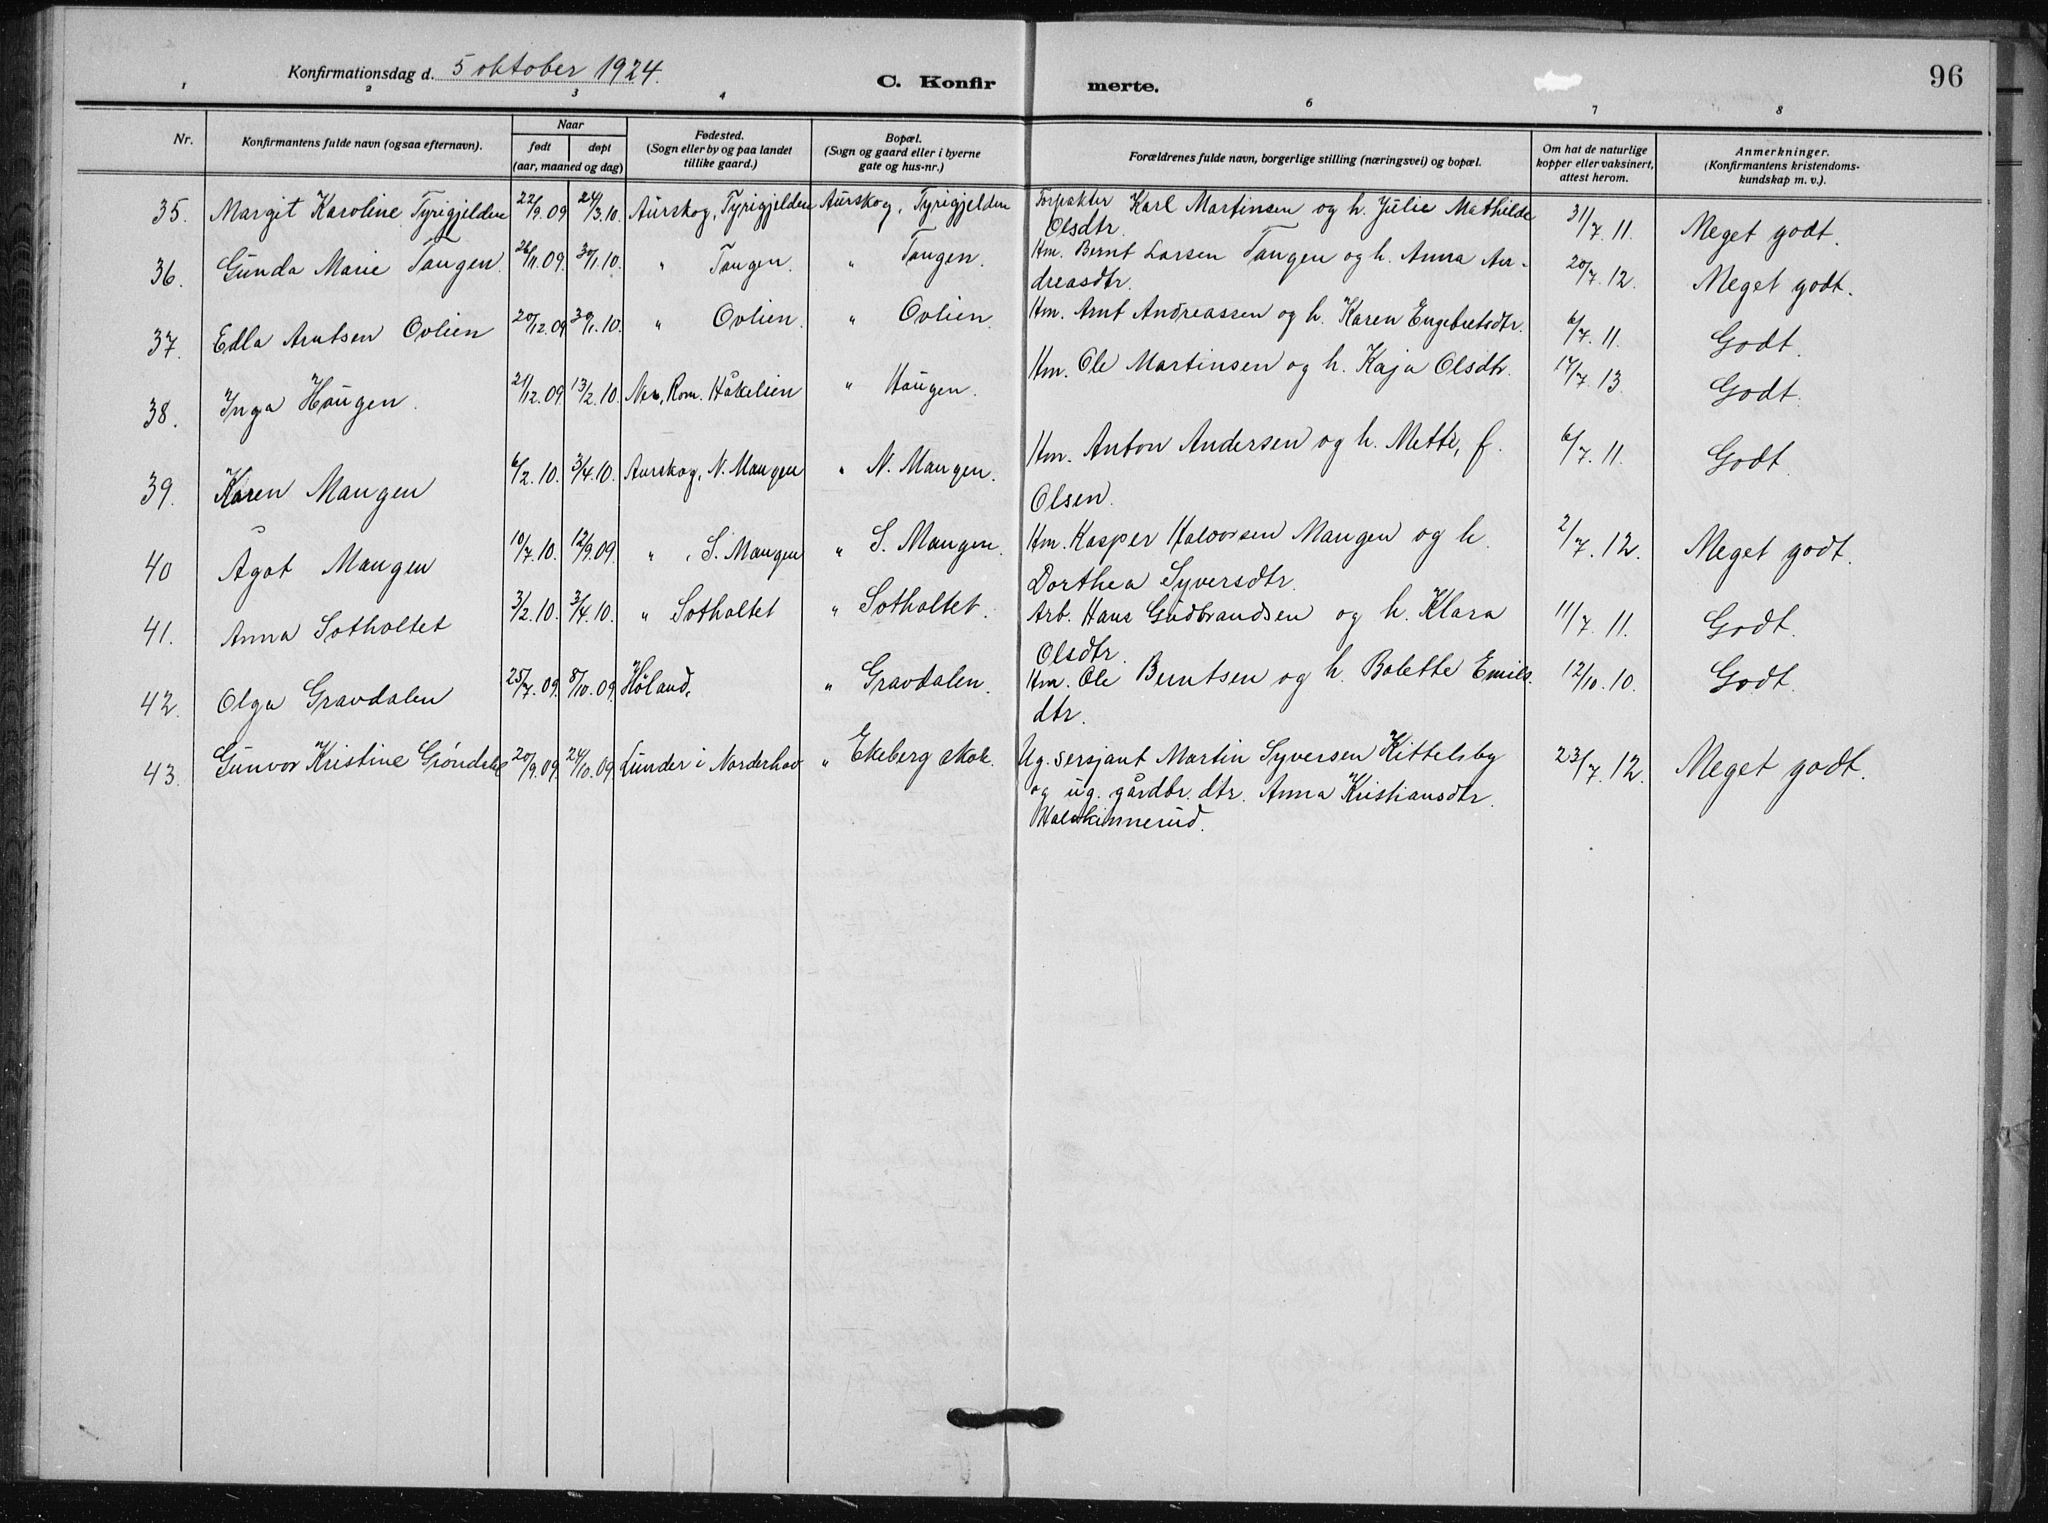 96
Konfirmationsdag d. 5 oktober 1924.
C. Konfirmerte.
1 2 3 4 6 7 8
Nr.
Konfirmantens fulde navn (ogsaa efternavn).
Naar
født døpt
(aar, maaned og dag)
Fødested.
(Sogn eller by og paa landet
tillike gaard.)
Bopæl.
(Sogn og gaard eller i byerne
gate og hus-nr.)
Forældrenes fulde navn, borgerlige stilling (næringsvei) og bopæl.
Om hat de naturlige
kopper eller vaksinert,
attest herom.
Anmerkninger.
(Konfirmantens kristendoms-
kundskap m. v.).
35. Margit Karoline Tyrigjelden 22/9.09 24/3.10. Aurskog, Tyrigjelden Aurskog, Tyrigjelden Forpakter Karl Martinsen og h. Julie Mathilde 31/7.11. Meget godt.
Olsdtr.
36. Gunda Marie Tangen. 26/11.09. 30/1.10. " Tangen. " Tangen. Hm. Bernt Larsen Tangen og h. Anna An- 20/7.12. Meget godt.
dreasdtr.
37. Edla Arntsen Ovlien 20/12.09 30/1.10. " Ovlien. " Ovlien. Hm. Arnt Andreassen og h. Karen Engebretsdtr. 6/7.11. Godt.
38. Inga Haugen. 21/12.09 13/2.10. Nes, Rom. Håkelien " Haugen. Hm. Ole Martinsen og h. Kaja Olsdtr. 17/7.13 Godt.
39. Karen Mangen 6/2.10. 3/4.10. Aurskog, N. Mangen " N. Mangen. Hm. Anton Andersen og h. Mette, f. 6/7.11. Godt.
Olsen.
40 Ågot Mangen 10/7.10. 12/9.09. " " S. Mangen " S. Mangen. Hm. Kasper Halvorsen Mangen og h. 2/7.12. Meget godt.
Dorthea Syversdtr.
41. Anna Sotholtet 3/2.10. 3/4.10. " Sotholtet " Sotholtet. Arb. Hans Gudbrandsen og h. Klara 11/7.11. Godt.
Olsdtr.
42. Olga Gravdalen 25/7.09. 8/10.09. Høland, " Gravdalen. Hm. Ole Berntsen og h. Bolette Emils. 12/10.10. Godt.
dtr.
43. Gunvor Kristine Grøndahl 20/9.09. 24/10.09. Lunder i Norderhov " Ekeberg skole. Ug. sersjant Martin Syversen Kittelsby 23/7.12. Meget godt.
og ug. gårdbr. dtr. Anna Kristiansdtr.